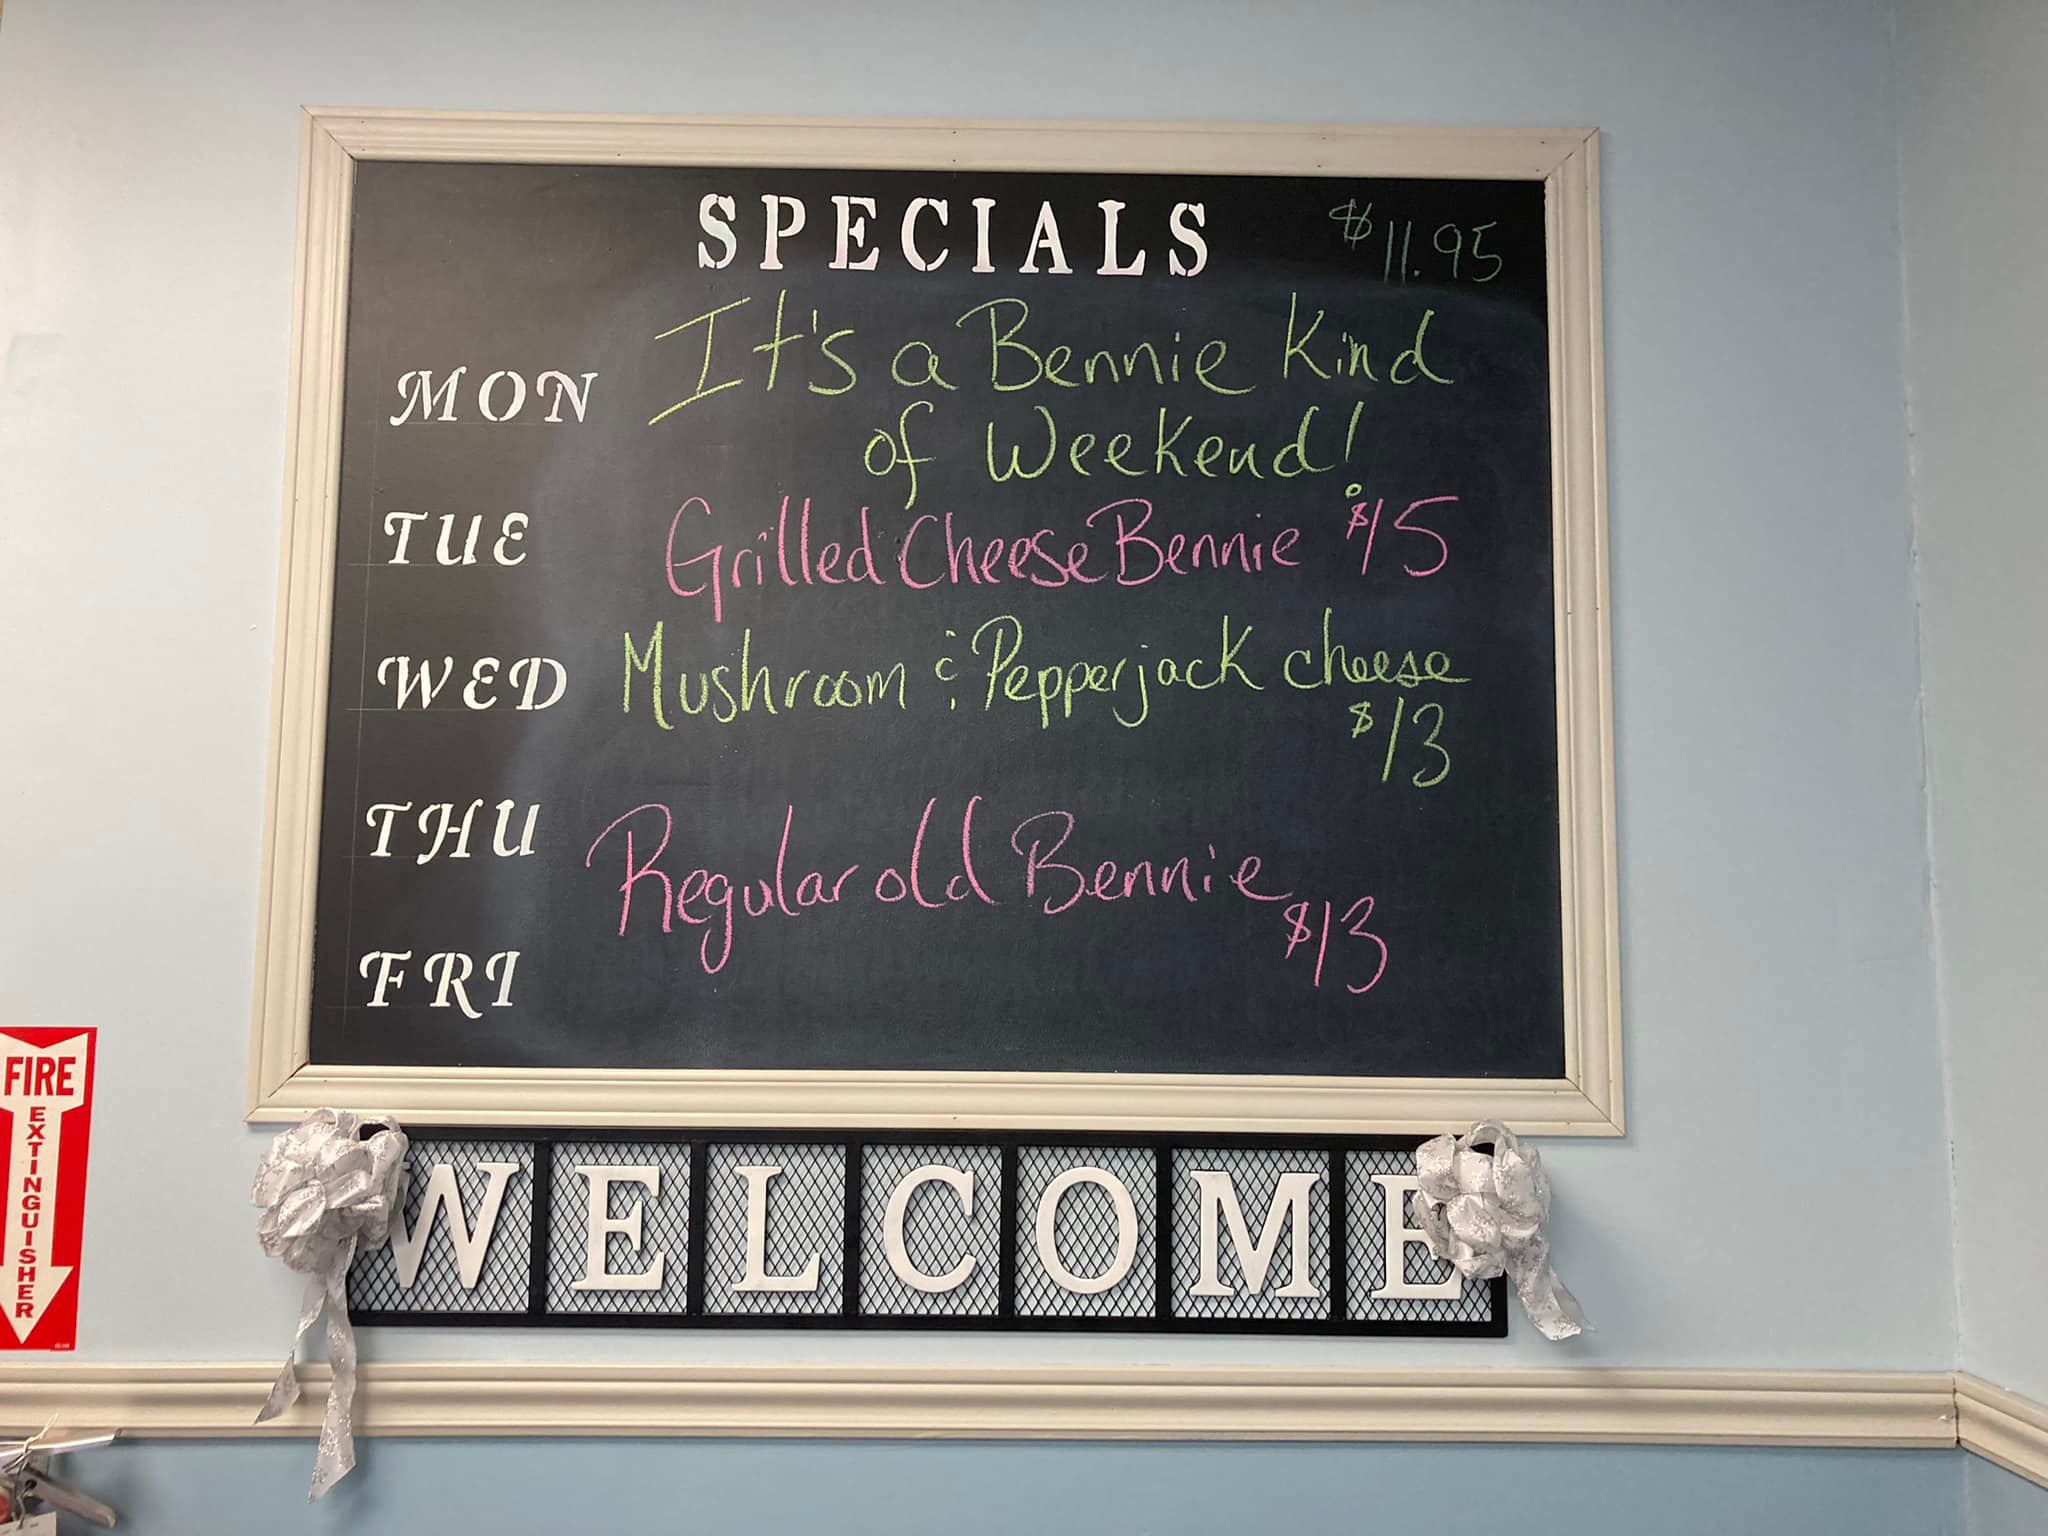 SPECIALS $11.95
It's a Bennie Kind
MON
of Weekend!
TUE Grilled Cheese Bennie $15
WED Mushroom & Pepperjack cheese
$13
THU Regular old Bennie
$13
FRI
FIRE
EXTINGUISHER
WELCOME